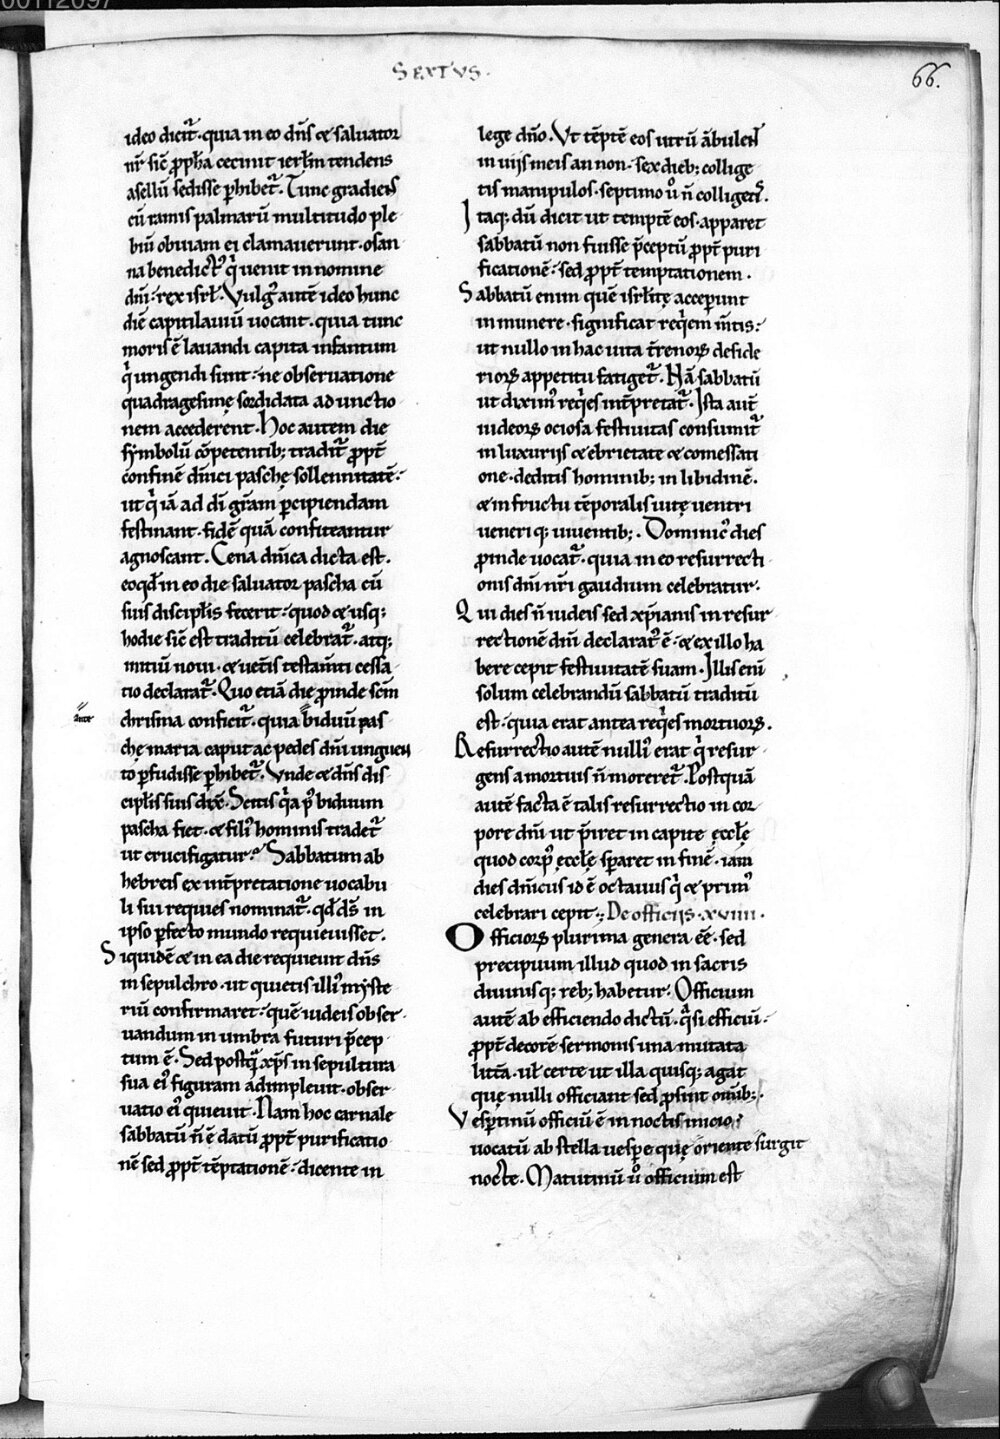 00112097
SEXTVS.
66.
ideo dicit᷑. quia in eo dn̄s & saluator
nr̄ sic̄ ꝓph̄a cecinit ierłm tendens
asellū sedisse ꝑhibet᷑. Tunc gradiens
cū ramis palmarū multitudo ple
biū obuiam ei clamauerunt. osan
na benedict᷒ qͥ uenit in nomine
dn̄i: rex isrł. Vulg᷒ autē ideo hunc
diē capitilauiū uocant. quia tunc
moris ē lauandi capita infantum
qͥ ungendi sunt: ne obseruatione
quadragesimę sordidata ad unctio
nem accederent. Hoc autem die
symbolū cōpetentib; tradit᷑ ꝓpt̄
confinē dn̄ici paschę sollennitatē:
ut qͥ iā ad dī gr̄am ꝑcipiendam
festinant. fidē quā confiteantur
agnoscant. Cena dn̄ica dicta est.
eo qd̄ in eo die saluator pascha cū
suis discipłis fecerit: quod & usq;
hodie sic̄ est traditū celebrat᷑. atq;
initiū noui. & uet̄is testam̄ti cessa
tio declarat᷑. Quo etiā die ꝓinde sc̄m
chrisma conficit᷑. quia biduū pas
chę maria caput ac pedes dn̄i unguen
to ꝑfudisse ꝑhibet᷑. Vnde & dn̄s dis
cipłis suis dix̄. Scitis qͣa p᷒ biduum
pascha fiet. & fili᷒ hominis tradet᷑
ut crucifigatur. Sabbatum ab
hebreis ex int̄pretatione uocabu
li sui requies nominat᷑. qd̄ ds̄ in
ipso ꝑfecto mundo requieuisset.
Siquidē & in ea die requieuit dn̄s
in sepulchro. ut quietis illi᷒ myste
riū confirmaret: quē iudeis obser
uandum in umbra futuri p̄cep
tum ē. Sed postqͣ xp̄s in sepultura
sua ei᷒ figuram adimpleuit. obser
uatio ei᷒ quieuit. Nam hoc carnale
sabbatū n̄ ē datū ꝓpt̄ purificatio
nē sed ꝓpt̄ tēptationē: dicente in
lege dn̄o. Vt tēptē eos utrū ābulent
in uiis meis an non. sex dieb; collige
tis manipulos. septimo ů n̄ colligetis.
Itaq; dū dicit ut temptē eos. apparet
sabbatū non fuisse p̄ceptū ꝓpt̄ puri
ficationē: sed ꝓpt̄ temptationem.
Sabbatū enim quē isrłitę acceperunt
in munere. significat reqͥem m̄tis:
ut nullo in hac uita t̄renoꝝ deside
rioꝝ appetitu fatiget᷑. Nā sabbatū
ut dixim᷒ reqͥes int̄pretat᷑. Ista aut̄
iudeoꝝ ociosa festiuitas consumit᷑
in luxuriis & ebrietate & comessati
one. deditis hominib; in libidinē.
& in fructu tēporalis uitę uentri
ueneri q; uiuentib;. Dominic᷒ dies
ꝓinde uocat᷑. quia in eo resurrecti
onis dn̄i nr̄i gaudium celebratur.
Qui dies n̄ iudeis sed xp̄ianis in resur
rectionē dn̄i declarat᷒ ē. & ex illo ha
bere cepit festiuitatē suam. Illis enī
solum celebrandū sabbatū traditū
est. quia erat antea reqͥes mortuoꝝ.
Resurrectio autē nulli᷒ erat qͥ resur
gens a mortuis n̄ moreret᷑. Postquā
autē facta ē talis resurrectio in cor
pore dn̄i ut p̄iret in capite ęcclę
quod corp᷒ ęcclę sꝑaret in finē. iam
dies dn̄icus id ē octauus qͥ & prim᷒
celebrari cepit. De officiis. xviiii.
Officioꝝ plurima genera ēē. sed
precipuum illud quod in sacris
diuinisq; reb; habetur. Officium
autē ab efficiendo dictū. qͣsi efficiū:
ꝓpt̄ decorē sermonis una mutata
litt̄a. uł certe ut illa quisq; agat
quę nulli officiant sed ꝓsint om̄ib;.
Vesꝑtinū officiū ē in noctis inicio
uocatū ab stella uesꝑe quę oriente surgit
nocte. Matutinū ů officium est